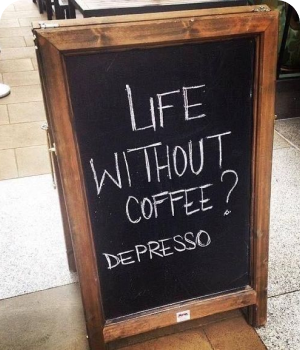 LIFE
WITHOUT
COFFEE?
DEPRESSO